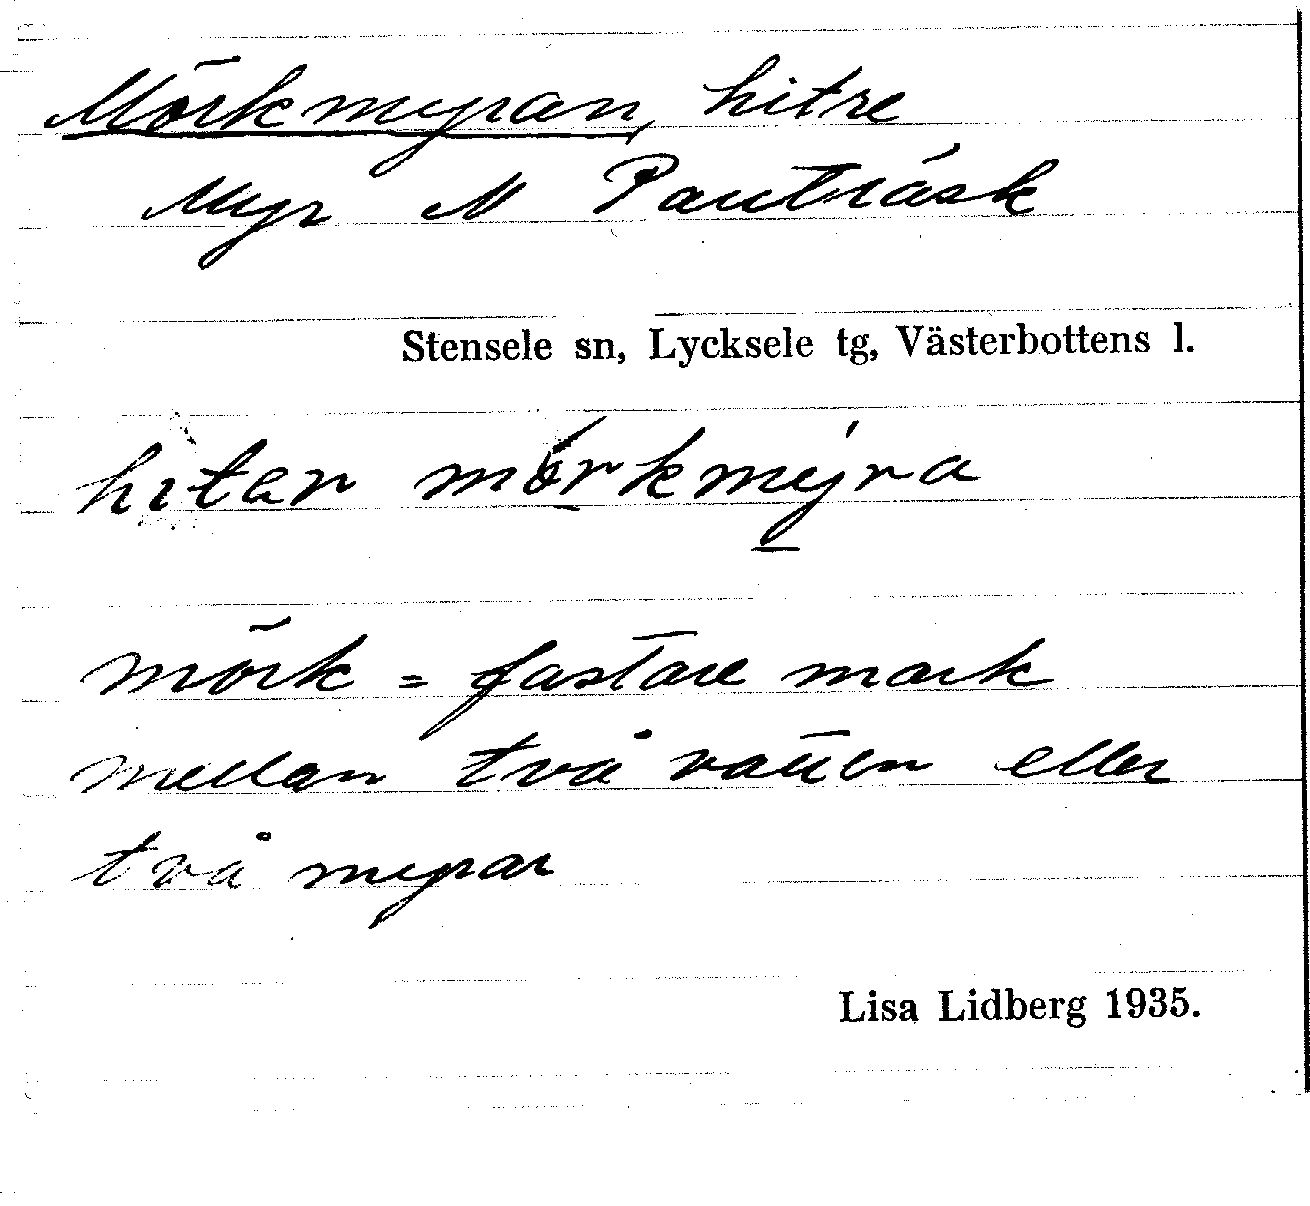 Mörkmyran, hitre
Myr N Pauträsk
Stensele sn, Lycksele tg, Västerbottens l.
hitər mörkmyra
mörk = fastare mark
mellan två vatten eller
två myrar
Lisa Lidberg 1935.